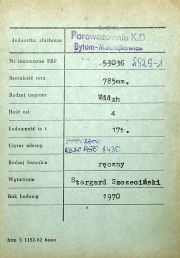 Jednostka służbowa
Parowozownia K.D.
Bytom-Maciejkowice
Nr inwentarza PKP 53036 5929-1
Szerokość toru 785mm.
Rodzaj wagonu Wddxh
Ilość osi 4
Ładowność w t 17t.
Ciężar własny
Rodzaj hamulca ręczny
Wytwórnia Stargard Szczeciński
Rok budowy 1970